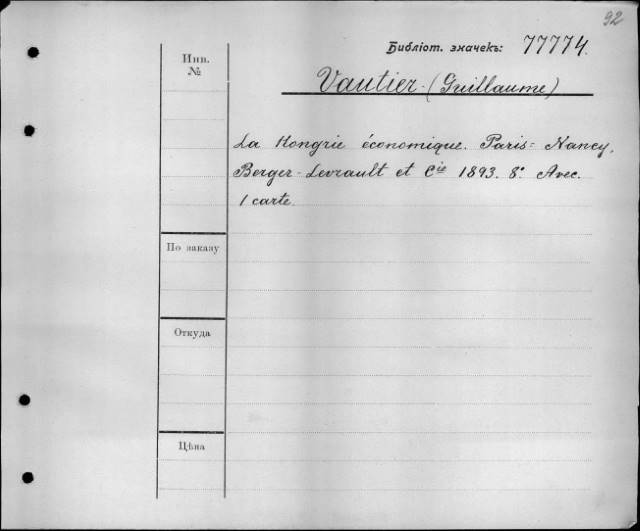 92
Библіот. значекъ: 77774.
Инв.
№
Vautier. (Guillaume)
La Hongrie économique. Paris-Nancy,
Berger-Levrault et Cie 1893. 8°. Avec
1 carte.
По заказу
Откуда
Цѣна